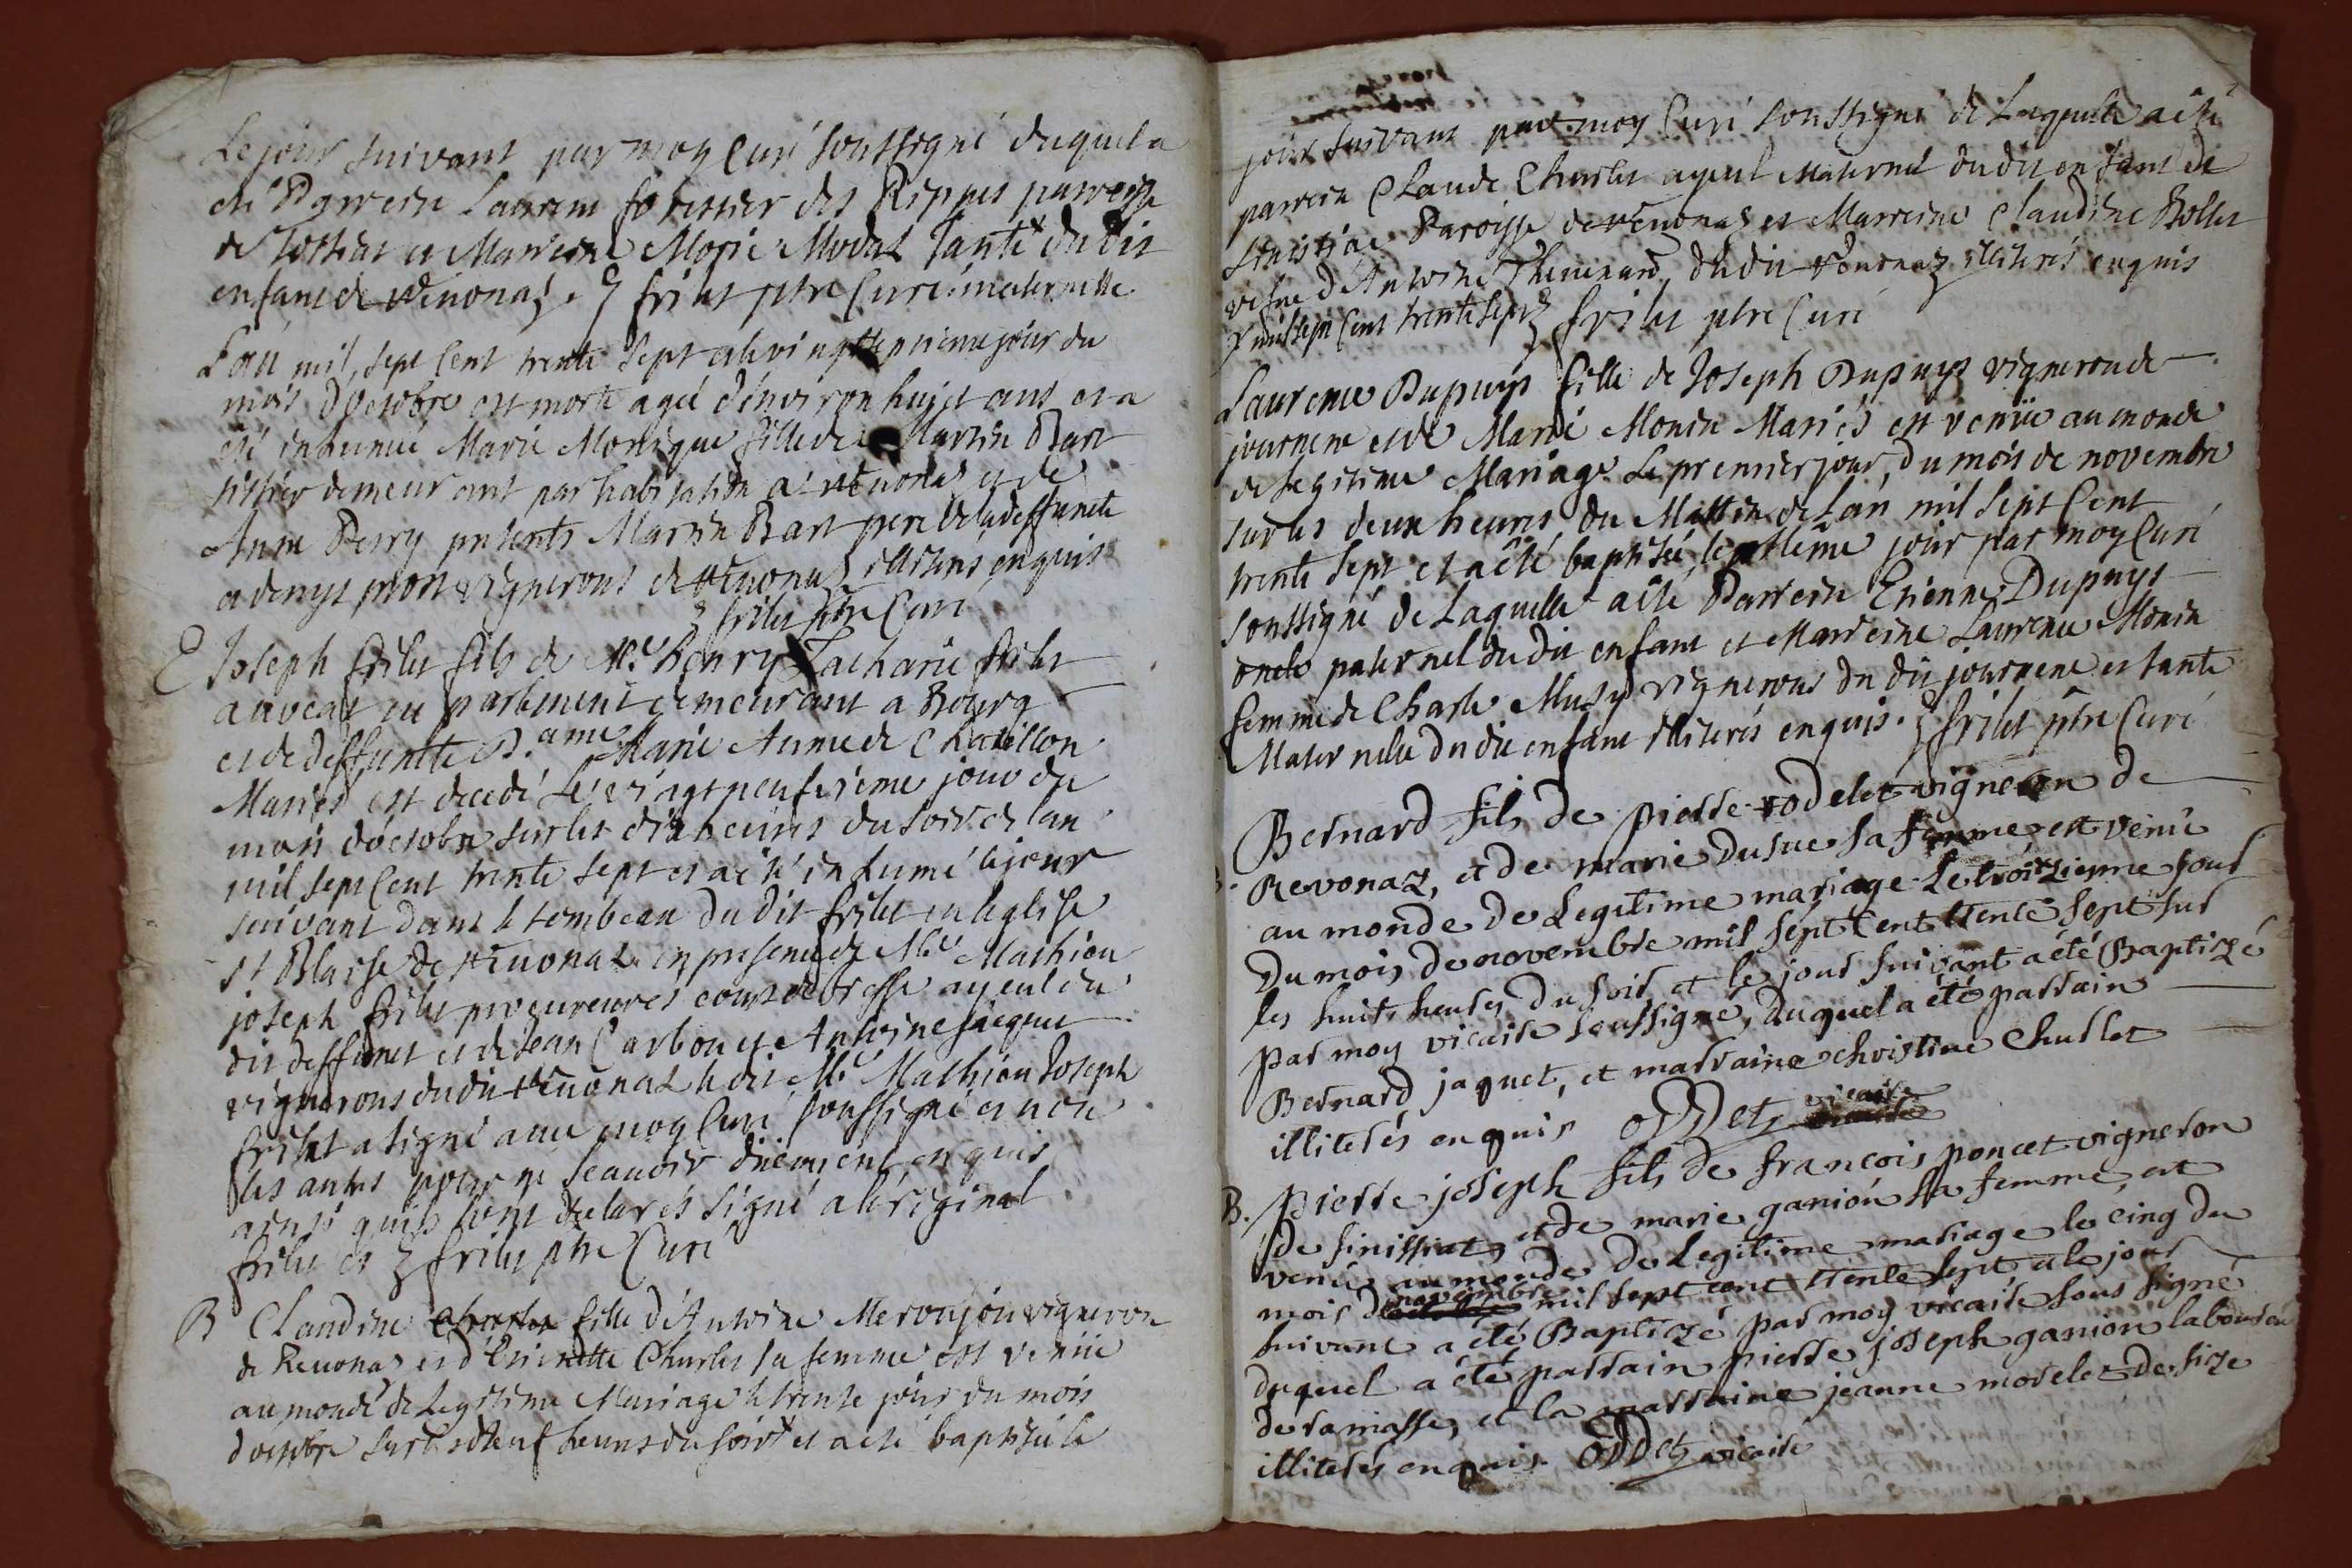 Le jour suivant par moy Curé soussigné duquel a
été Parrein Laurent forestier des Rippes parroisse
de Tossiat et Marreine Marie Modas tante du dit
enfant de Revonas. frilet ptre Curé. maternelle
L'an mil, sept Cent trente sept et le vingtseptieme jour du
mois d'octobre est morte agée d'environ huict ans et a
été inhumée Marie Monique fille de Martin Bart
tissier demeurant par habitation a revonas et de
Anne Perry presents Martin Bart pere de la deffuncte
et denys vignerons de revonas illiterés enquis
frilet ptre Curé
E Joseph frilet fils de Mr. henry Zacharie frilet
advocat au parlement demeurant a Bourg
et de deffuncte D.ame Marie Aimée de Chatillon
Mariés est decedé le vingtneufvieme jour du
mois d'octobre sur les dix heures du soir de l'an
mil sept Cent trente sept et a eté inhumé le jour
suivant dans le tombeau du dit frilet en l'eglise
St Blaise de revonas en presence de Mr. Mathieu
joseph frilet procureur es cours de bresse ayeul du
dit deffunct et de Jean Carbon et Antoine jacquet
vignerons du dit revonas le dit Mr. Mathieu Joseph
frilet a signé avec moy Curé soussigné et non
les autres pour ne sçavoir dhuement enquis
ainsi quils sont declarés signé a l'original
frilet et frilet ptre Curé
B Claudine fille d'Antoine Meroujou vigneron
de Revonas et d'Etienette Charlet sa femme est venüe
au monde de Legitime Mariage le trente jour du mois
d'octobre sur les neuf heures du soir et a eté baptisée le
jour suivant par moy Curé soussigné de Laquelle a été
parrein Claude Charlet ayeul Maternel du dit enfant de
Paroisse de revonas et Marreine Claudine Bollet
vefve d'Antoine Thevenard du dit revonas illiterés enquis
mil sept Cent trente sept frilet ptre Curé
Laurence Dupuys fille de Joseph Dupuys vigneron de
journent et de Marie Monin Mariés est venüe au monde
de legitime Mariage le premier jour du mois de novembre
sur les deux heures du Mattin de l'an mil sept Cent
trente sept et a été baptisée le même jour par moy Curé
soussigné de Laquelle a été Parrein Etienne Dupuys
oncle paternel du dit enfant et Marreine Laurence Monin
femme de Charle Musy vignerons du dit journent et tante
Maternelle du dit enfant illiterés enquis. frilet ptre Curé
Bernard fils de pierre rodelet vigneron de
Revonaz, et de marie dusue sa femme est venu
au monde de Legitime mariage Le troizieme jour
du mois de novembre mil sept cent trente sept sur
les huit heures du soir et le jour suivant a été Baptizé
par moy vicaire soussigné, duquel a été parrain
Bernard jaquet, et marraine christine Charlet
illiterés enquis oddet vicaire
B. Pierre joseph fils de françois poncet vigneron
de sinissiat, et de marie ganion sa femme, est
venu au monde de Legitime mariage le cinq du
mois de novembre mil sept cent trente sept et le jour
suivant a été Baptizé par moy vicaire sous signé
duquel a été parrain pierre joseph ganion laboureur
de ramasse, et la marraine jeanne morelet de size
illiterés enquis. oddet vicaire